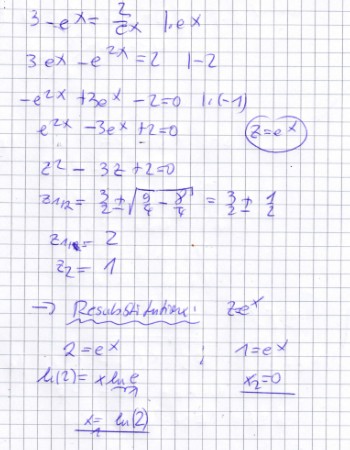 3 - e^x = 2/e^x |·e^x
3e^x - e^2x = 2 |-2
-e^2x + 3e^x - 2 = 0 |·(-1)
e^2x - 3e^x + 2 = 0 z = e^x
z² - 3z + 2 = 0
z1,2 = 3/2 ± √(9/4 - 8/4) = 3/2 ± 1/2
z1 = 2
z2 = 1
→ Resubstitution: z = e^x
2 = e^x ; 1 = e^x
ln(2) = x ln e x2 = 0
x1 = ln(2)